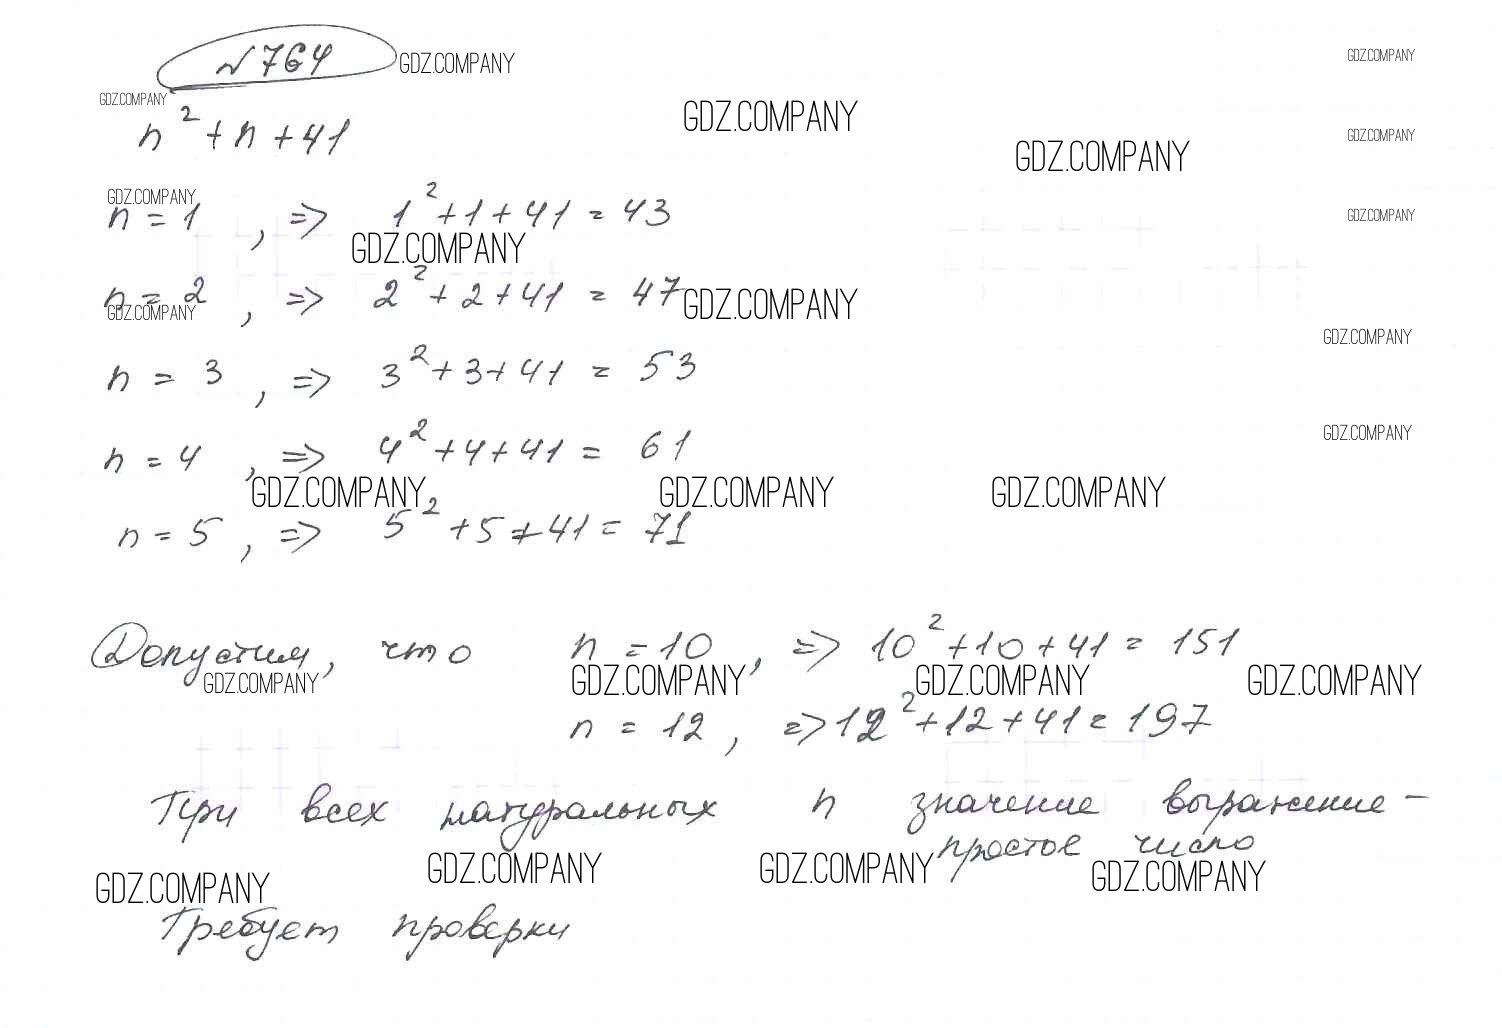 №764 GDZ.COMPANY GDZ.COMPANY
GDZ.COMPANY
n² + n + 41 GDZ.COMPANY GDZ.COMPANY
GDZ.COMPANY
GDZ.COMPANY
n = 1 , => 1² + 1 + 41 = 43 GDZ.COMPANY
GDZ.COMPANY
n = 2 , => 2² + 2 + 41 = 47 GDZ.COMPANY
GDZ.COMPANY GDZ.COMPANY
n = 3 , => 3² + 3 + 41 = 53
n = 4 , => 4² + 4 + 41 = 61 GDZ.COMPANY
GDZ.COMPANY GDZ.COMPANY GDZ.COMPANY
n = 5 , => 5² + 5 + 41 = 71
Допустим, что n = 10 , => 10² + 10 + 41 = 151
GDZ.COMPANY GDZ.COMPANY GDZ.COMPANY GDZ.COMPANY
n = 12 , => 12² + 12 + 41 = 197
При всех натуральных n значение выражение –
простое число
GDZ.COMPANY GDZ.COMPANY GDZ.COMPANY GDZ.COMPANY
Требует проверки